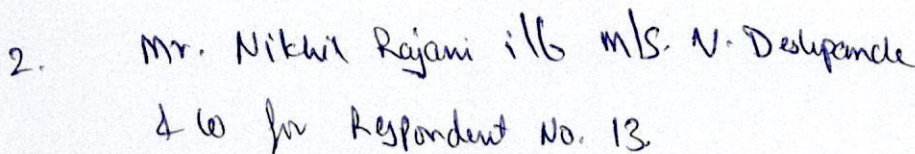 2. Mr. Nikhil Rajani i/b M/S. V. Deshpande
& Co for Respondent No. 13.